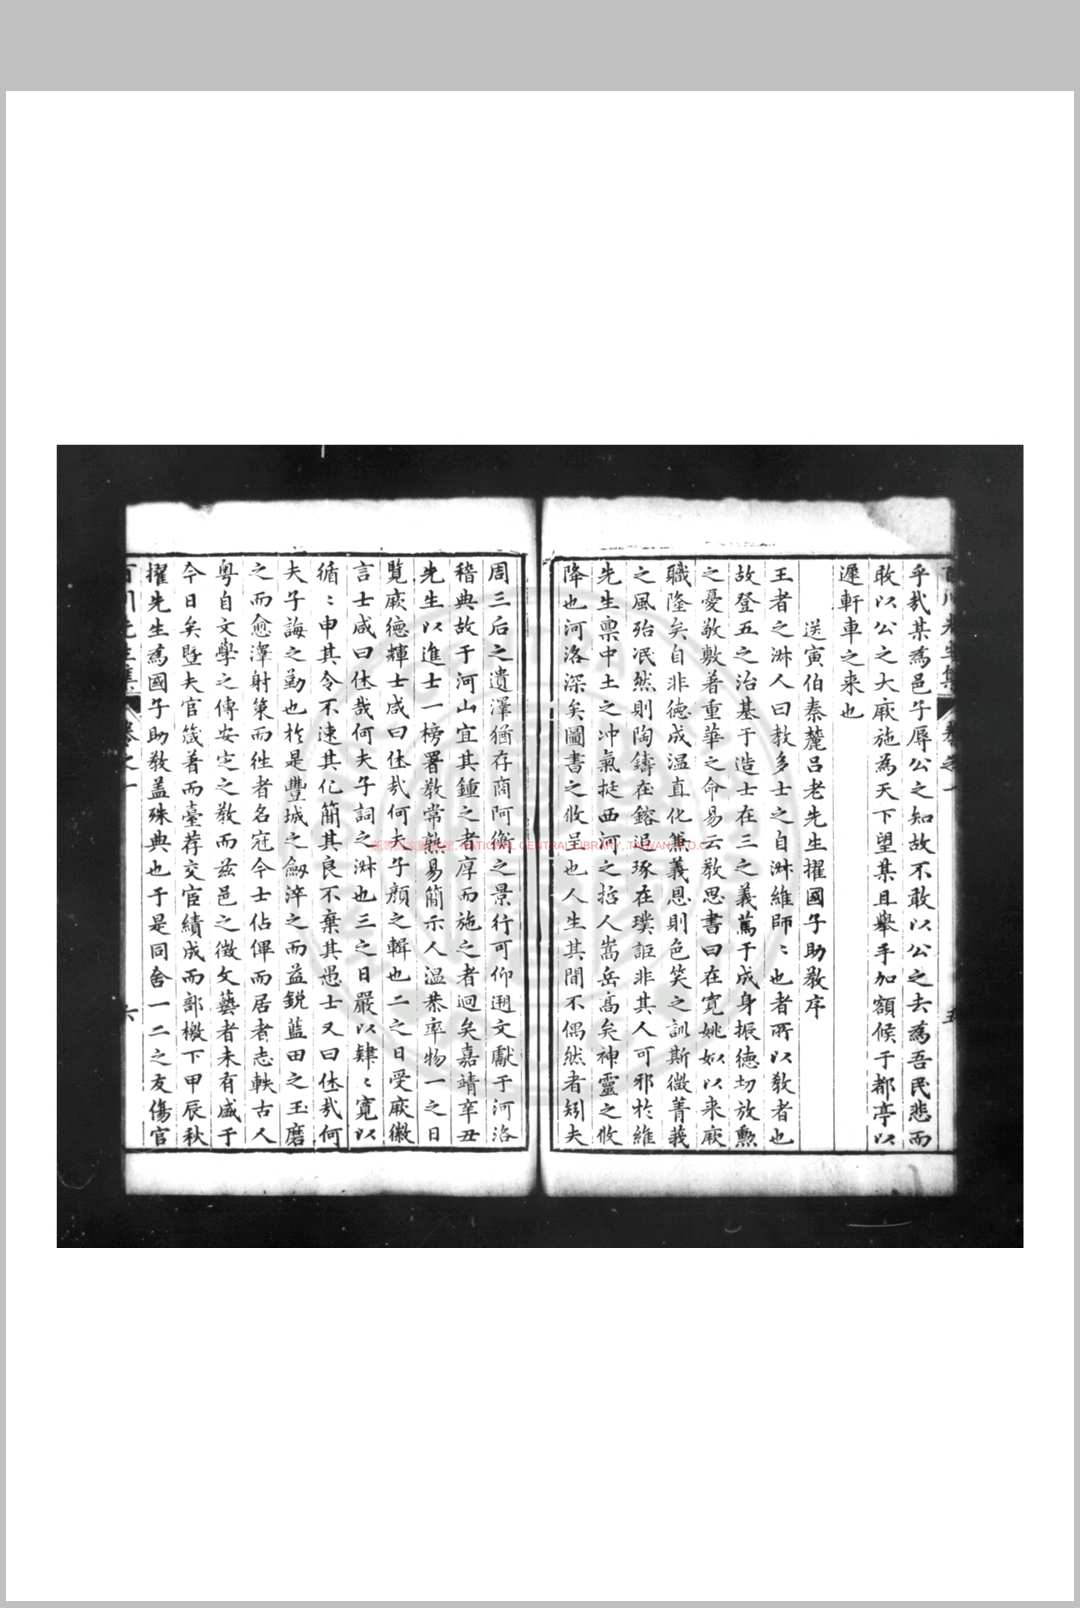 乎哉某爲邑子辱公之知故不敢以公之去爲吾民悲而
敢以公之大厥施為天下望某且舉手加額候于都亭以
遲軒車之来也
送寅伯秦麓吕老先生擢國子助教序
王者之淋人曰教多士之自淋維師〻也者所以教者也
故登五之治基于造士在三之義篤于成身振德切放勳
之憂敬敷著重華之命易云教思書曰在寛姚姒以来厥
職隆矣自非德成温直化兼義恩則色笑之訓斯微菁莪
之風殆冺然則陶鑄在鎔追琢在璞詎非其人可邪於維
先生禀中土之冲氣挺西河之哲人嵩岳高矣神靈之攸
降也河洛深矣圖書之攸呈也人生其間不偶然者矧夫
周三后之遺澤猶存商阿衡之景行可仰遡文獻于河洛
稽典故于河山宜其鍾之者厚而施之者迴矣嘉靖辛丑
先生以進士一榜署教常熟易簡示人温恭率物一之日
覽厥德輝士咸曰休哉何夫子顏之輯也二之日受厥徽
言士咸曰休哉何夫子詞之淋也三之日嚴以肄〻寛以
循〻申其令不速其化簡其良不棄其愚士又曰休哉何
夫子誨之勤也於是豐城之劔淬之而益鋭藍田之玉磨
之而愈澤射策而徃者名冠今士佔俾而居者志軼古人
粤自文學之傳安定之教而兹邑之徵文藝者未有盛于
今日矣曁夫官箴著而臺荐交官績成而部檄下甲辰秋
擢先生爲國子助教盖殊典也于是同舍一二之友傷官
百川先生集 卷之一 五
百川先生集 卷之一 六
NATIONAL CENTRAL LIBRARY, TAIWAN, R.O.C